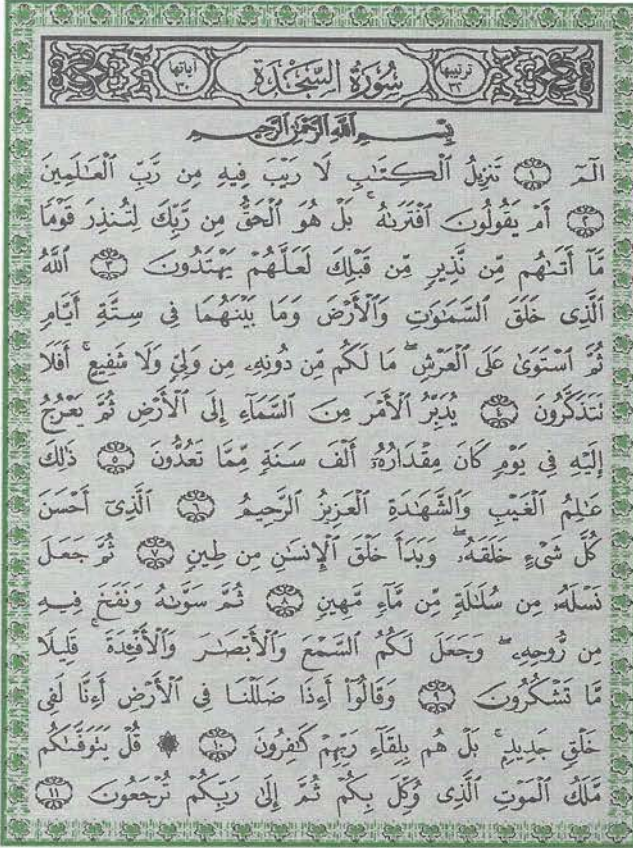 ترتيبها ٣٢ سُورَةُ السَّجْدَةِ آياتها ٣٠
بِسْمِ اللَّهِ الرَّحْمَٰنِ الرَّحِيمِ
الٓمٓ ١ تَنزِيلُ الْكِتَٰبِ لَا رَيْبَ فِيهِ مِن رَّبِّ الْعَٰلَمِينَ
٢ أَمْ يَقُولُونَ افْتَرَىٰهُ ۚ بَلْ هُوَ الْحَقُّ مِن رَّبِّكَ لِتُنذِرَ قَوْمًا
مَّآ أَتَىٰهُم مِّن نَّذِيرٍ مِّن قَبْلِكَ لَعَلَّهُمْ يَهْتَدُونَ ٣ اللَّهُ
الَّذِى خَلَقَ السَّمَٰوَٰتِ وَالْأَرْضَ وَمَا بَيْنَهُمَا فِى سِتَّةِ أَيَّامٍ
ثُمَّ اسْتَوَىٰ عَلَى الْعَرْشِ ۖ مَا لَكُم مِّن دُونِهِۦ مِن وَلِىٍّ وَلَا شَفِيعٍ ۚ أَفَلَا
تَتَذَكَّرُونَ ٤ يُدَبِّرُ الْأَمْرَ مِنَ السَّمَآءِ إِلَى الْأَرْضِ ثُمَّ يَعْرُجُ
إِلَيْهِ فِى يَوْمٍ كَانَ مِقْدَارُهُۥٓ أَلْفَ سَنَةٍ مِّمَّا تَعُدُّونَ ٥ ذَٰلِكَ
عَٰلِمُ الْغَيْبِ وَالشَّهَٰدَةِ الْعَزِيزُ الرَّحِيمُ ٦ الَّذِىٓ أَحْسَنَ
كُلَّ شَىْءٍ خَلَقَهُۥ ۖ وَبَدَأَ خَلْقَ الْإِنسَٰنِ مِن طِينٍ ٧ ثُمَّ جَعَلَ
نَسْلَهُۥ مِن سُلَٰلَةٍ مِّن مَّآءٍ مَّهِينٍ ٨ ثُمَّ سَوَّىٰهُ وَنَفَخَ فِيهِ
مِن رُّوحِهِۦ ۖ وَجَعَلَ لَكُمُ السَّمْعَ وَالْأَبْصَٰرَ وَالْأَفْـِٔدَةَ ۚ قَلِيلًا
مَّا تَشْكُرُونَ ٩ وَقَالُوٓا۟ أَءِذَا ضَلَلْنَا فِى الْأَرْضِ أَءِنَّا لَفِى
خَلْقٍ جَدِيدٍۭ ۚ بَلْ هُم بِلِقَآءِ رَبِّهِمْ كَٰفِرُونَ ١٠ ۞ قُلْ يَتَوَفَّىٰكُم
مَّلَكُ الْمَوْتِ الَّذِى وُكِّلَ بِكُمْ ثُمَّ إِلَىٰ رَبِّكُمْ تُرْجَعُونَ ١١